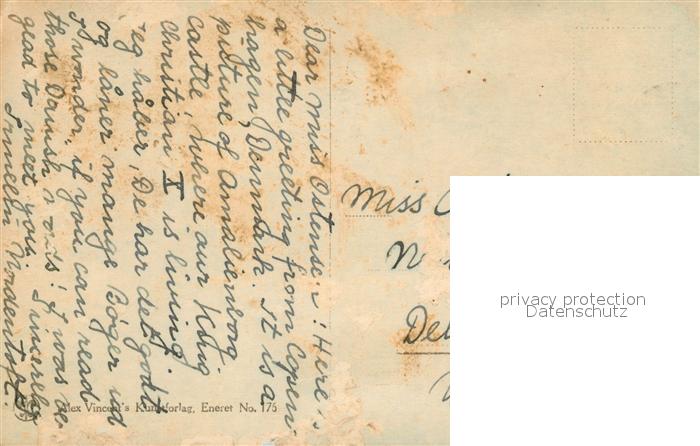 Dear Miss Ostensen! Here's
a little greeting from Copen-
hagen, Denmark. It is a
picture of Amalienborg
castle, where our King
Christian X is living.
Jeg håber, De har det godt
og låner mange Bøger ud
I wonder, if you can read
those Danish I was ve-
glad to meet you. Sincerely
Irmelin Nordentoft.
Alex Vincent's Kunstforlag, Eneret No. 175
Miss
N
Del
privacy protection
Datenschutz